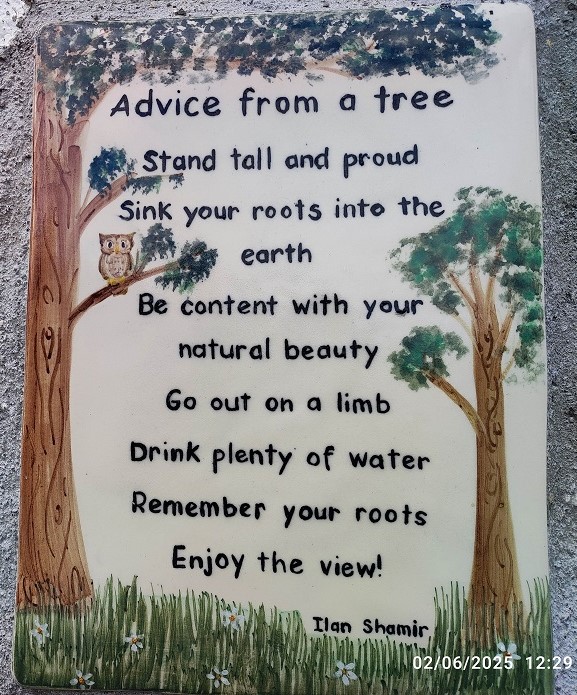 Advice from a tree
Stand tall and proud
Sink your roots into the
earth
Be content with your
natural beauty
Go out on a limb
Drink plenty of water
Remember your roots
Enjoy the view!
Ilan Shamir
02/06/2025 12:29